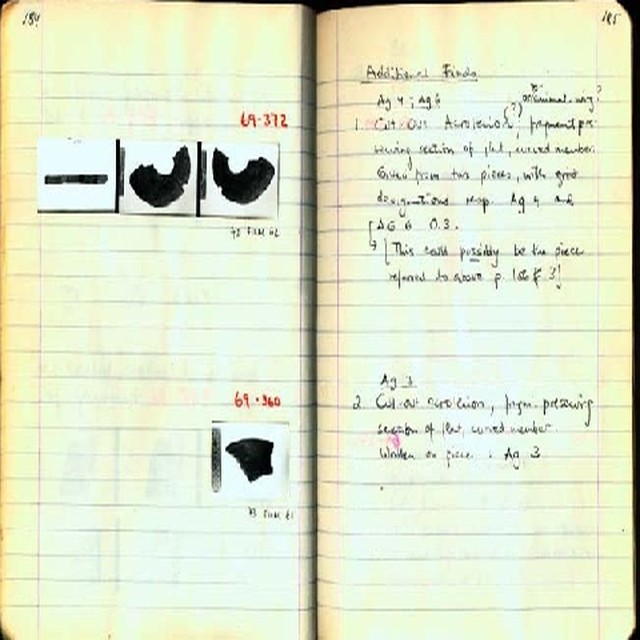 184
69-372
73 FILM 62
69-360
73 FILM 61
185
Additional Finds
Ag 4; Ag 6
1. Cut-out Acroterion, fragment pre-
serving section of flat, curved member.
Given from two pieces, with grid
designations resp. Ag 4 and
AG 6 0.3.
[This could possibly be the piece
referred to above p. 3]
Ag 3
2. Cut-out acroterion, fragm. preserving
section of flat, curved member
Written on piece: Ag 3